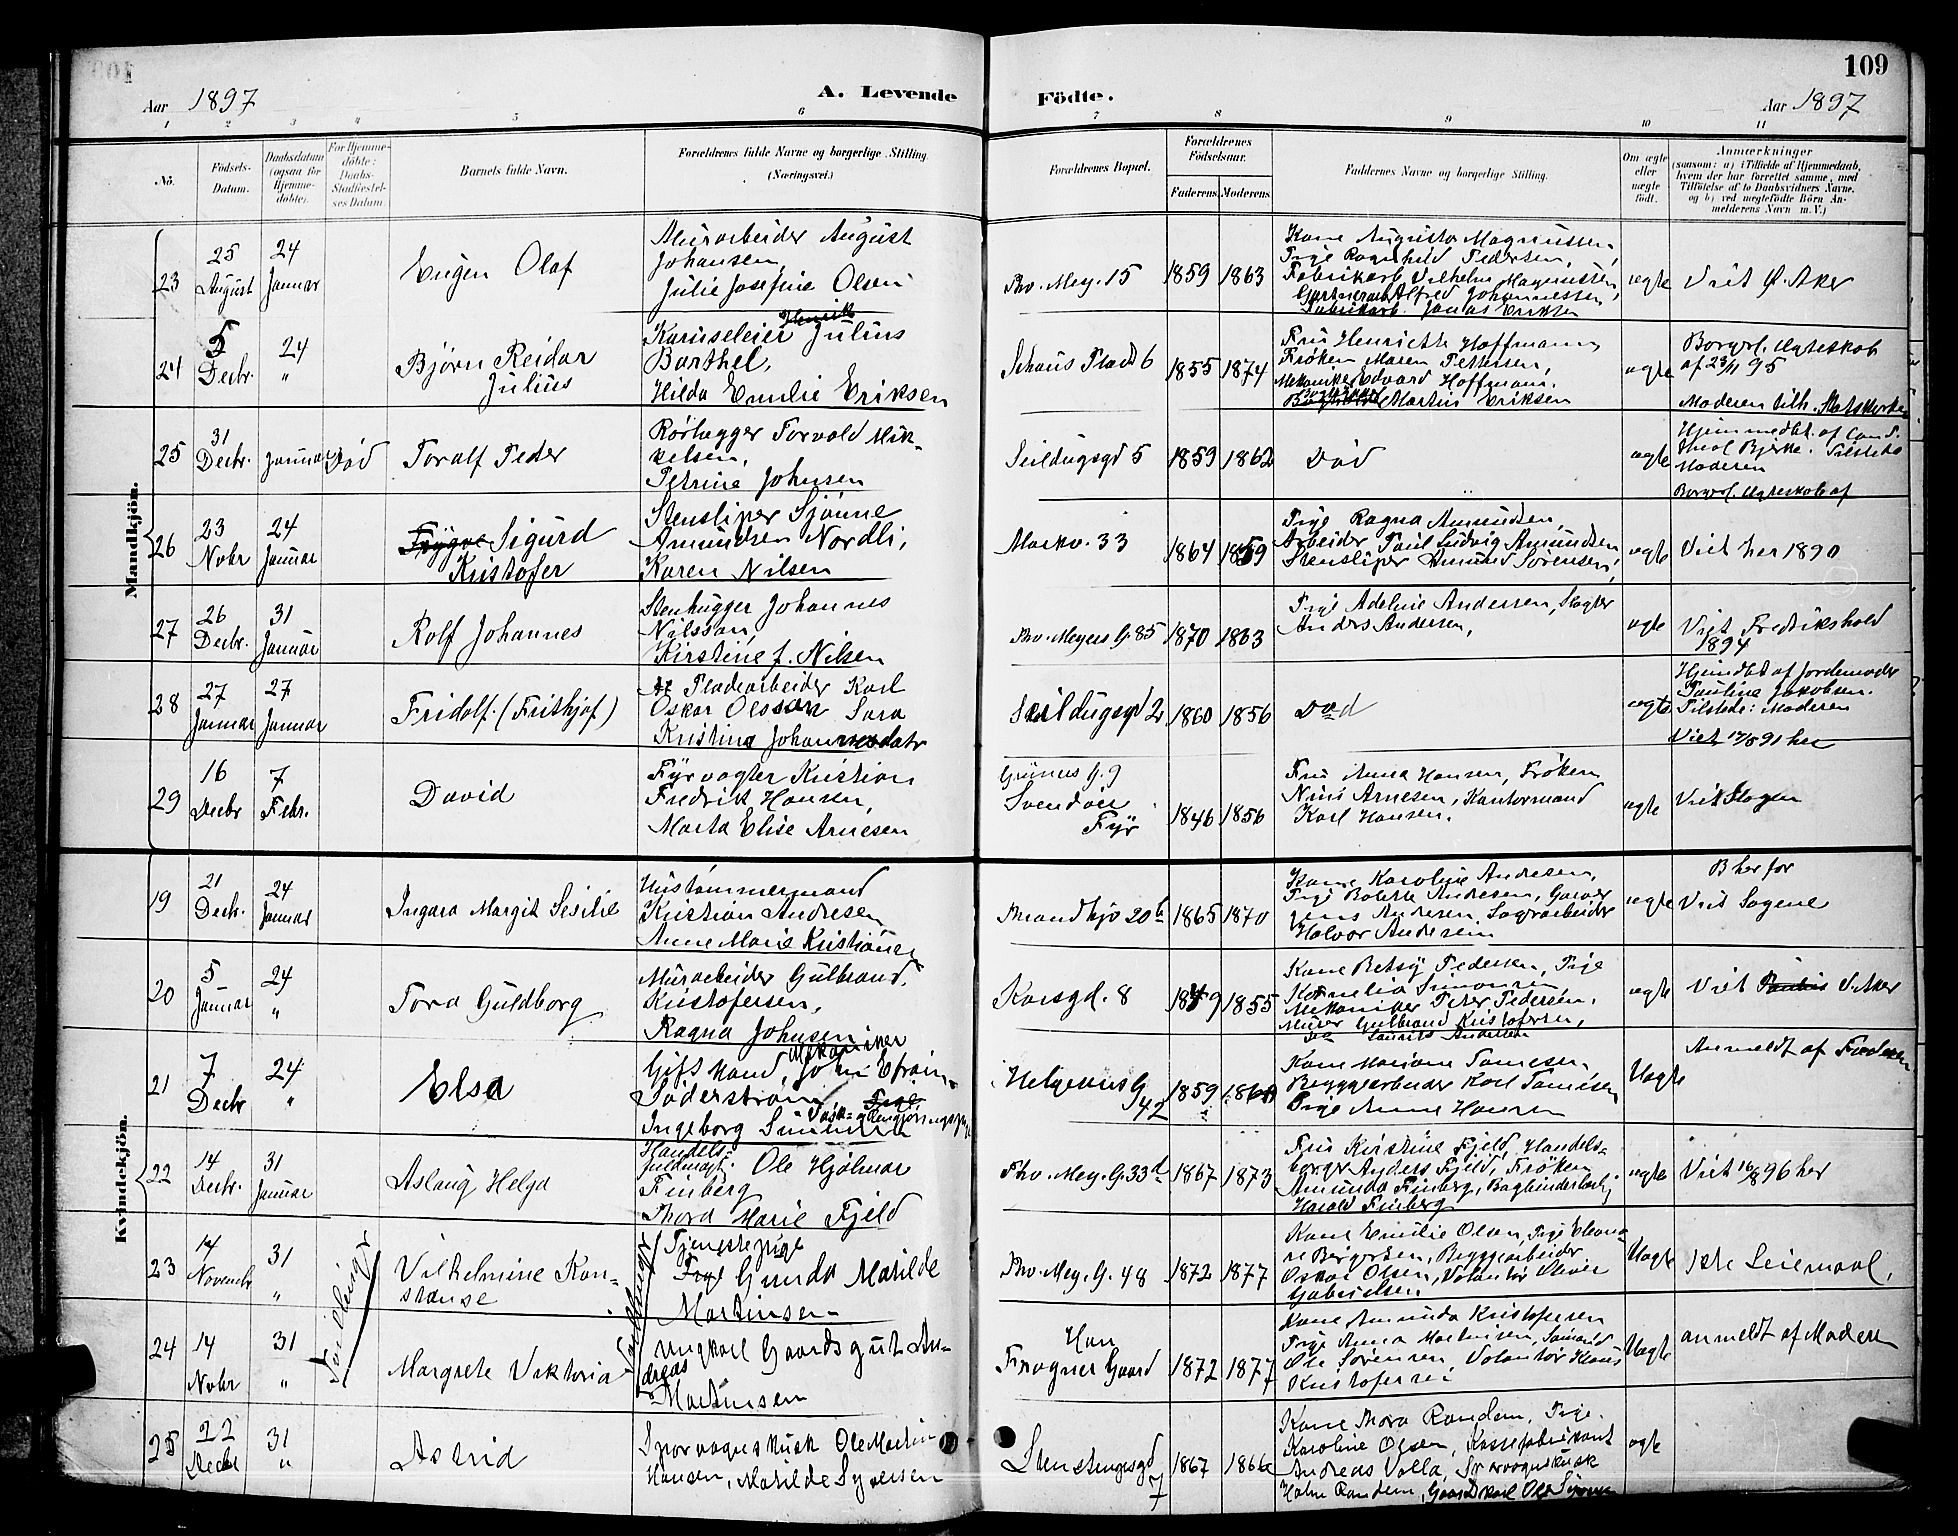 109
Aar 1897
A. Levende Födte.
Aar 1897
1 2 3 4 5 6 7 8 9 10 11
No.
Födsels-Datum.
Daabsdatum (ogsaa for Hjemme-döbte).
For Hjemme-döbte: Daabs-Stadfæstel-ses Datum.
Barnets fulde Navn.
Forældrenes fulde Navne og borgerlige Stilling (Næringsvei.)
Forældrenes Bopæl.
Forældrenes Födselsaar.
Faderens Moderens
Faddernes Navne og borgerlige Stilling.
Om ægte eller uægte födt.
Anmærkninger
(saasom: a) i Tilfælde af Hjemmedaab,
hvem der har forrettet samme, med
Tilföielse af to Daabsvidners Navne,
og b) ved uægtefödte Börn An-
melderens Navn m. V.)
Mandkjön.
23
25 August
24 Januar
Eugen Olaf
Murarbeider August
Johansen,
Julie Josefine Olsen
Thv. Mey. 15
1859 1863
Kone Augusta Magnussen,
Pige Ragnhild Pedersen,
Fabrikarb. Vilhelm Magnussen,
Gartnerarb. Alfred Johannessen,
Fabrikarb. Jonas Eriksen
ægte
Viet Ø. Aker
24
5 Decbr.
24 "
Bjørn Reidar
Julius
Karuseleier Henrik Julius
Barthel,
Hilda Emilie Eriksen
Schous Plads 6
1855 1874
Fru Henriette Hoffmann,
Frøken Maren Pettersen,
Mekaniker Edvard Hoffmann,
Martin Eriksen
ægte
Borgerl. Ægteskab
af 23/11 95
Moderen tilh. Statskirken
25
31 Decbr.
Januar
Død
Toralf Peder
Rørlægger Torvald Mik-
kelsen,
Petrine Johnsen
Seildugsgd 5
1859 1862
Død
ægte
Hjemmedbt. af Cand.
theol Bjerke. Tilstede
Moderen
Borgerl. Ægteskab af
26
23 Nobr
24 Januar
Trygve Sigurd
Kristofer
Stensliper Sjønne
Amundsen Nordli,
Karen Nilsen
Markv. 33
1864 1859
Pige Ragna Amundsen,
Arbeider Paul Ludvig Amundsen,
Stensliper Amund Sørensen,
ægte
Viet her 1890
27
26 Decbr.
31 Januar
Rolf Johannes
Stenhugger Johannes
Nilsson,
Kirstine f. Nilsen
Thv. Meyers G. 85
1870 1863
Pige Adeline Andersen, Slagter
Anders Andersen,
ægte
Viet Fredrikshald
1894
28
27 Januar
27 Januar
Fridolf. (Frithjof)
Pladearbeider Karl
Oskar Olsson Sara
Kristina Johannesdatr
Seildugsgd 2
1860 1856
Død
ægte
Hjemdbt af Jordemoder
Pauline Jakobsen.
Tilstede: Moderen
Viet 12/5 91 her
29
16 Decbr
7 Febr.
David
Fyrvogter Kristian
Fredrik Hansen,
Marta Elise Arnesen
Grünes G. 9
Svendöen
Fyr
1846 1856
Fru Anna Hansen, Frøken
Nini Arnesen, Kontormand
Karl Hansen.
ægte
Viet Slagen
Kvindekjön.
19
21 Decbr.
24 Januar
Ingara Margit Sesilie
Hustømmermand
Kristian Andresen
Anne Marie Kristiansen
Thrandhjv 20 b
1865 1870
Kone Karoline Andresen,
Pige Bolette Andresen, Garver
Jens Andresen, Sagarbeider
Halvor Andersen
ægte
B her for
Viet Sagene
20
5 Januar
24 "
Tora Guldborg
Murarbeider Gulbrand
Kristofersen,
Ragna Johnsen
Korsgd. 8
1849 1855
Kone Betsy Pedersen, Pige
Kornelia Simonsen
Mekaniker Peter Pedersen,
Murer Gulbrand Kristofersen,
Laurits Andersen
ægte
Viet V. Aker
21
7 Decbr
24 "
Elsa
Gift Mand, Mekaniker John Efraim
Söderström,
Pige
Ingeborg
Helgesens G
42
1859 1860
Kone Mariane Tamesen
Bryggearbeider Karl Tamesen
Pige Anna Hansen
Uægte
Anmeldt af Faderen
22
14 Decbr.
31 Januar
Aslaug Helga
Handels-
fuldmægt. Ole Hjalmar
Finberg
Thora Marie Fjeld
Thv. Mey. G. 33 d
1867 1873
Fru Kirstine Fjeld, Handels-
borger Anders Fjeld, Frøken
Amunda Finberg, Bogbinderlærlj
Harald Finberg
ægte
Viet 16/8 96 her
23
14 Novembr
31 "
Tvillinger
Vilhelmine Kon-
stanse
Tjenestepige
Pige Gunda Matilde
Martinsen
Thv. Mey. G. 48
1872 1877
Kone Emilie Olsen, Pige Eleono-
re Bergersen, Bryggearbeider
Oskar Olsen, Volontør Oliver
Gabrielsen.
Uægte
1ste Leiermaal,
24
14 Nobr
31 "
Margrete Viktoria
Tvillinger
Ungkarl Gaardsgut An-
dreas
Martinsen
Han
Frogner Gaard
1872 1877
Kone Amunda Kristofersen
Pige Anna Martinsen, Sømand
Ole Sørensen, Volontør Klaus
Kristofersen
Uægte
anmeldt af Moderen
25
22 Decbr
31 "
Astrid
Sporvognskusk Ole Martin
Hansen, Matilde Syversen
Stenstrupsgd
7
1867 1866
Kone Thora Randem, Pige
Karoline Olsen, Kassefabrikant
Andreas Volla, Sporvognskusk
Halvor Randem, Gaardskarl Ole Syversen
ægte